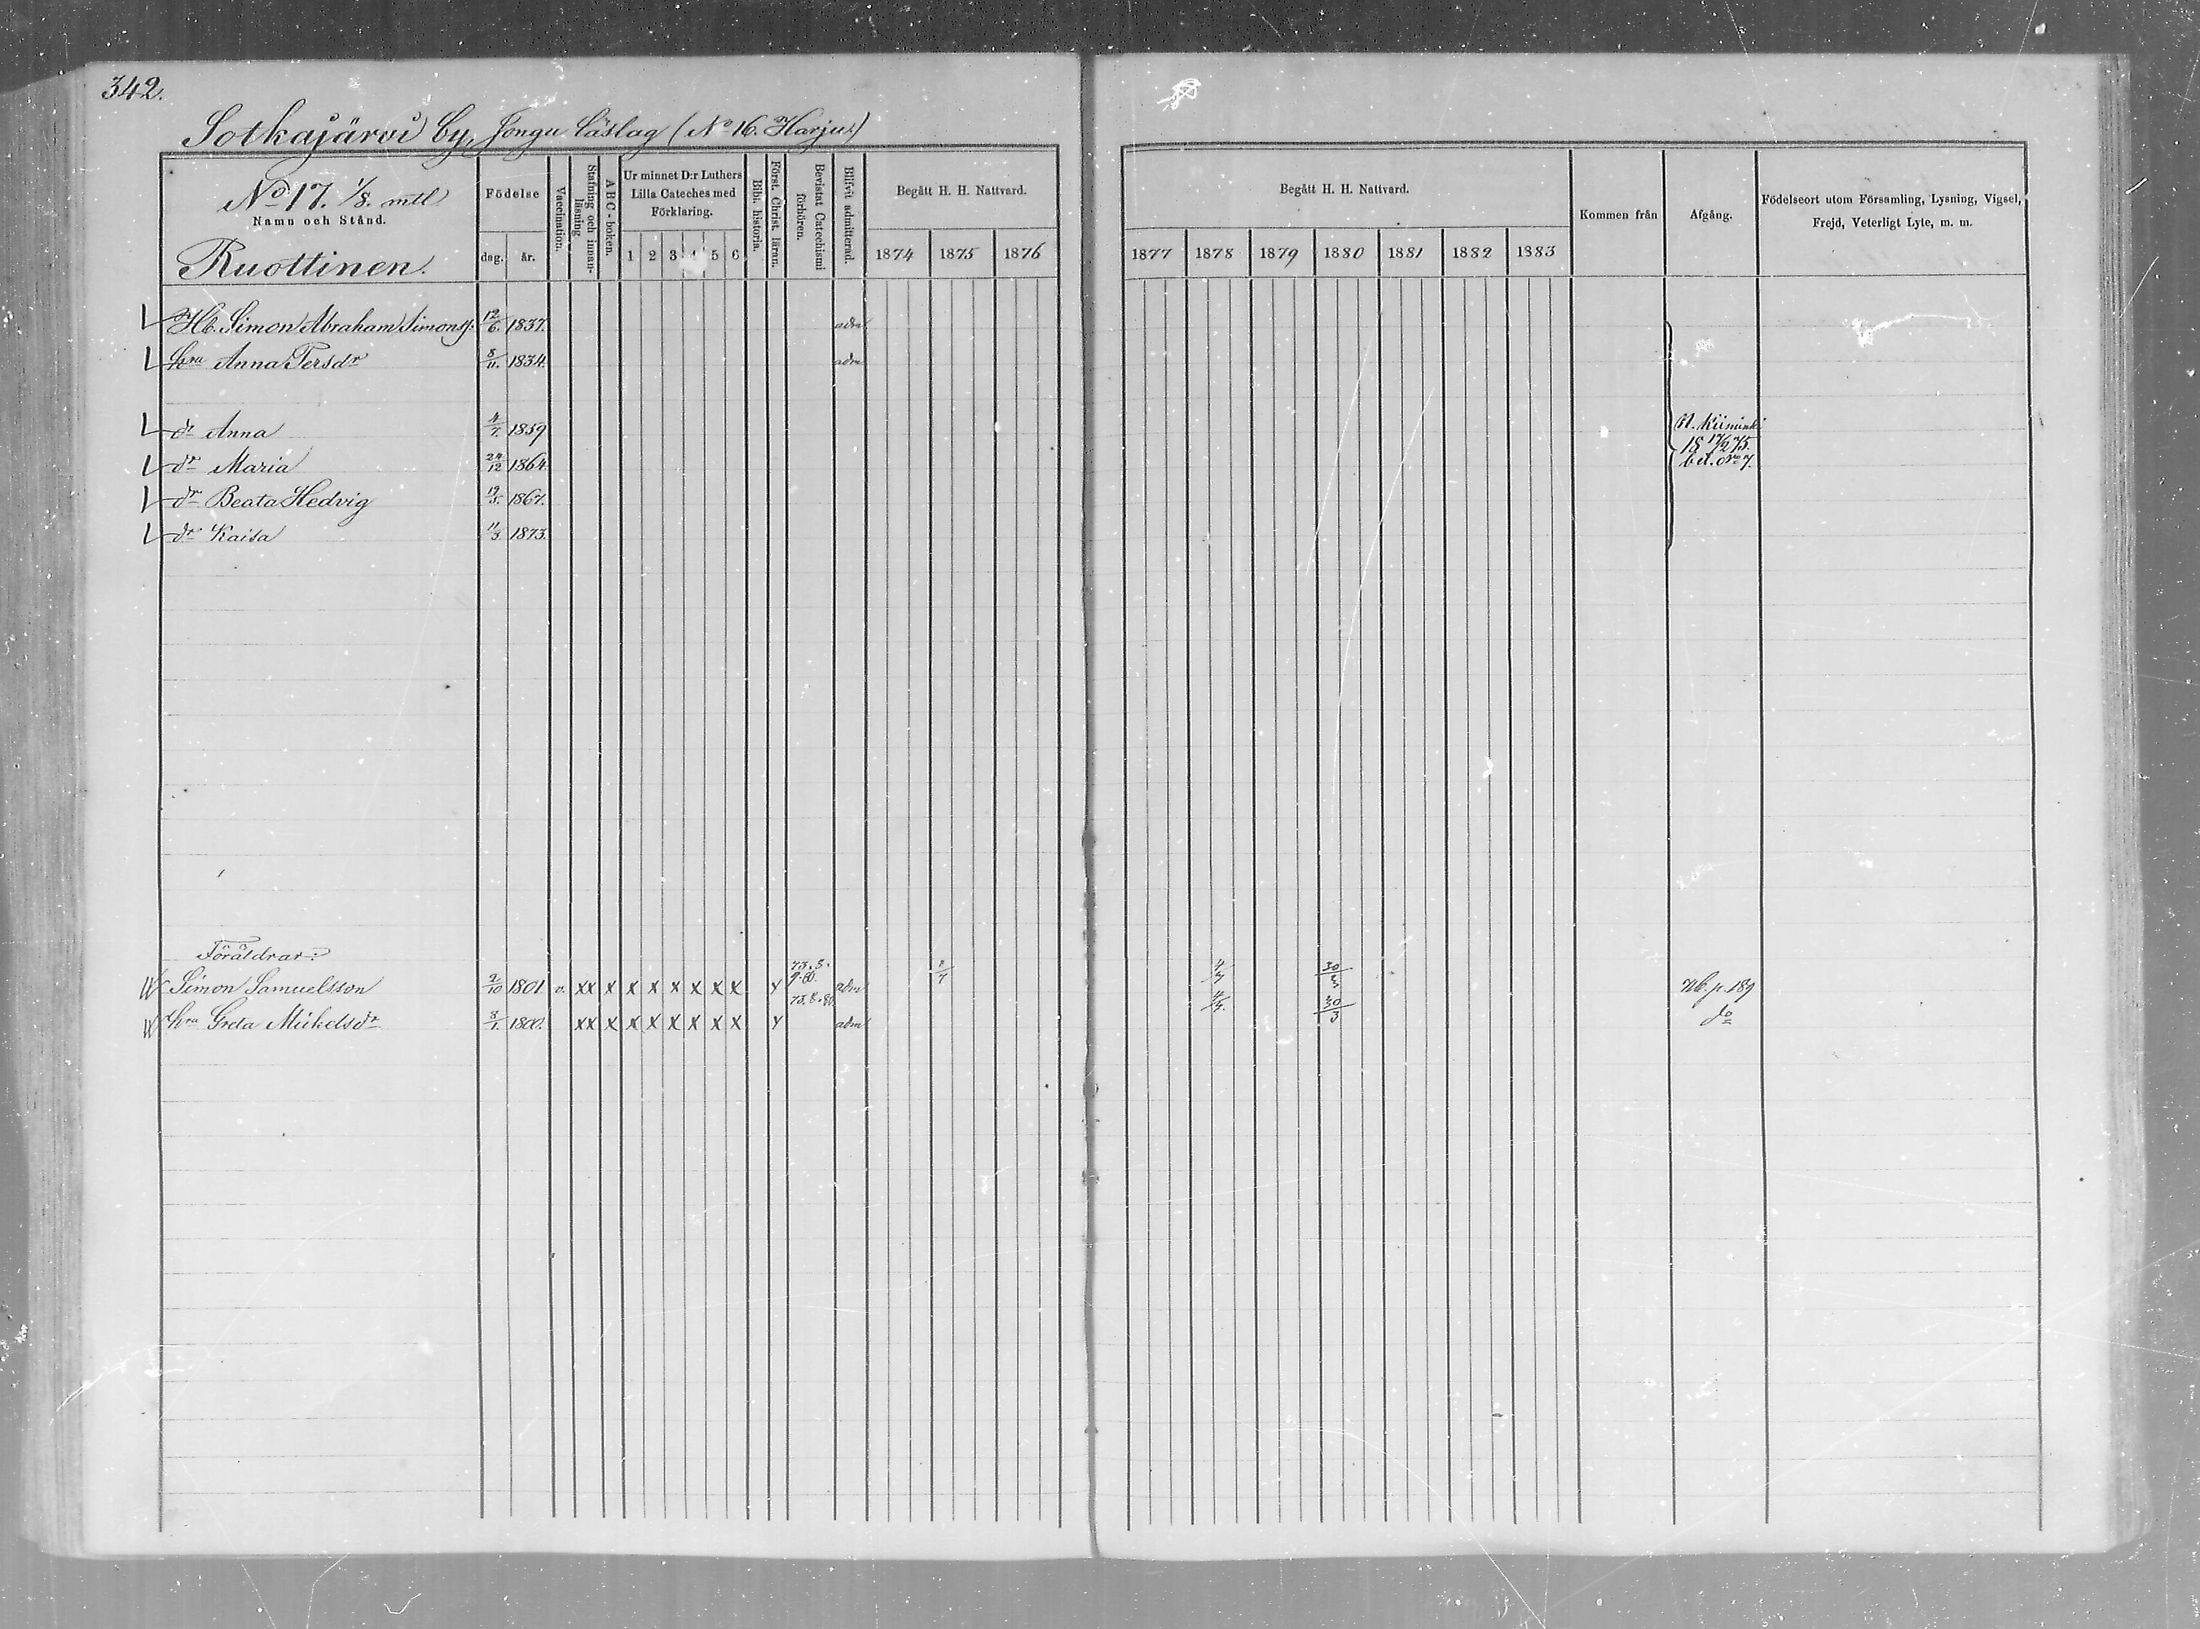 342.
Sotkajärvi by, Jongu läslag (No 16. Harju.)
No 17. 1/8. mtl
Namn och Stånd.
Ruottinen.
Födelse
dag. år.
Vaccination.
Stafning och innanläsning
ABC-boken.
Ur minnet D:r Luthers
Lilla Cateches med
Förklaring.
1 2 3 4 5 6
Bibl. historia.
Först. Christ. läran.
Bevistat Catechismi förhören.
Blifvit admitterad.
Begått H. H. Nattvard.
1874 1875 1876
Begått H. H. Nattvard.
1877 1878 1879 1880 1881 1882 1883
Kommen från
Afgång.
Födelseort utom Församling, Lysning, Vigsel,
Frejd, Veterligt Lyte, m. m.
Hb. Simon Abraham Simonss. 12/6. 1837. adm
hru Anna Persdr 8/11. 1834. adm
dr Anna 4/7. 1859
dr Maria 24/12 1864
dr Beata Hedvig 19/3. 1867.
dr Kaisa 11/3. 1873.
Kiiminki
18 17/2 75.
bet. No 7.
Föräldrar:
Simon Samuelsson 2/10 1801 v. xx x x x x x x x y 75. 8. 9. 80. adm 4/7 30/3 nb. p. 189
hru Greta Mickelsdr 8/1. 1800. xx x x x x x x x y 75. 8. 80. adm 4/7. 30/3 do